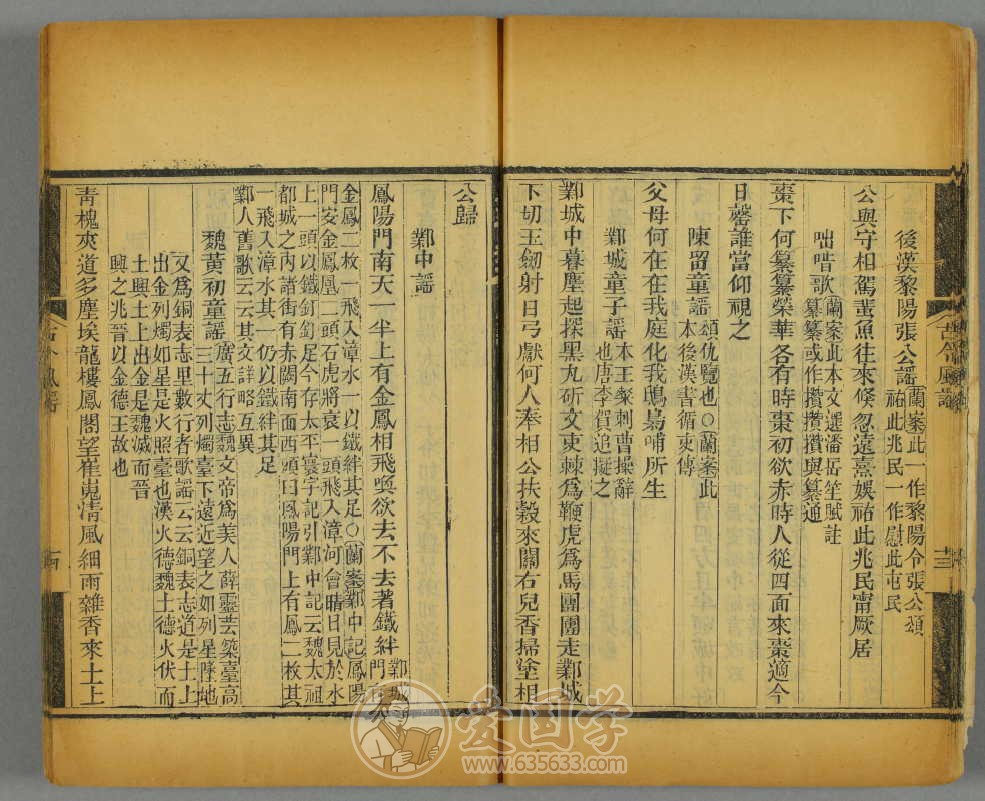 後漢黎陽張公謡
蘭案此一作黎陽令張公頌
祐此兆民一作慰此屯民
公與守相駕蜚魚往來倏忽遠熹娛祐此兆民甯厥居
咄唶歌
蘭案此本文選潘岳笙賦註
纂纂或作攢攢攢與纂通
棗下何纂纂榮華各有時棗初欲赤時人從四面來棗適今
日罄誰當仰視之
陳留童謡
頌仇覽也〇蘭案此
本後漢書循吏傳
父母何在在我庭化我鳲梟哺所生
鄴城童子謡
本王粲刺曹操辭
也唐李賀追擬之
鄴城中暮塵起探黑丸斫文吏棘爲鞭虎爲馬團團走鄴城
下切玉劒射日弓獻何人奉相公扶轂來關右兒香掃塗相
公歸
鄴中謡
鳳陽門南天一半上有金鳳相飛喚欲去不去著鐵絆
鄴城
門
金鳳二枚一飛入漳水一以鐵絆其足〇蘭案鄴中記鳳陽
門安金鳳凰二頭石虎將衰一頭飛入漳河會晴日見於水
上一頭以鐵釘釘足今存太平寰宇記引鄴中記云魏太祖
都城之内諸街有赤闕南面西頭曰鳳陽門上有鳳二枚其
一飛入漳水其一仍以鐵絆其足
鄴人舊歌云云其文詳略互異
魏黄初童謡
廣五行志魏文帝爲美人薛靈芸築臺高
三十丈列燭臺下遠近望之如列星墜地
又爲銅表志里數行者歌謡云云銅表志道是土上
出金列燭如星是火照臺也漢火德魏土德火伏而
土興土上出金是魏滅而晉
興之兆晉以金德王故也
青槐夾道多塵埃龍樓鳳閣望崔嵬清風細雨雜香來土上
古今風謡
十三
十四
爱国学
www.635633.com